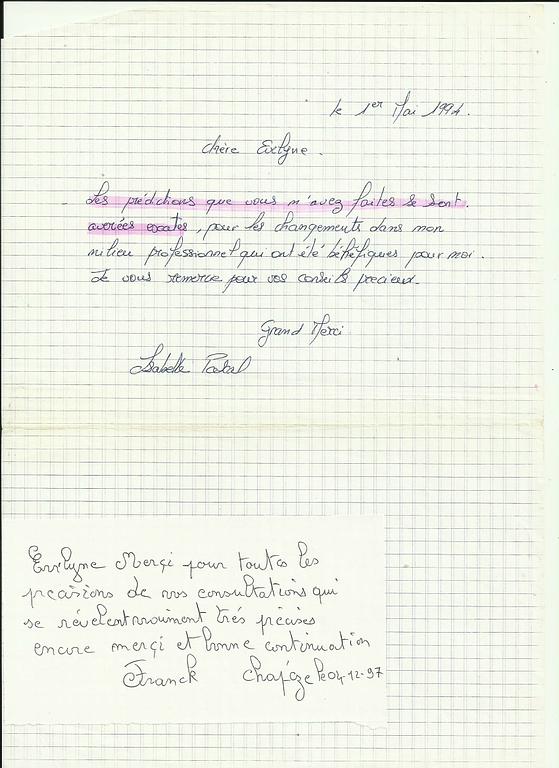 le 1er Mai 1994.
chère Evelyne.
Les prédictions que vous m'avez faites se sont
averées exactes, pour les changements dans mon
milieu professionnel qui ont été bénéfiques pour moi.
Je vous remercie pour vos conseils precieux.
Grand Merci
Isabelle
Evelyne Merçi pour toutes les
précisions de vos consultations qui
se révèlent vraiment trés précises
encore merçi et bonne continuation
Franck le 04-12-97